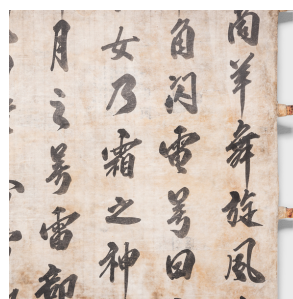 商羊舞旋風
角閃電号曰
女乃霜之神
月之号雷部